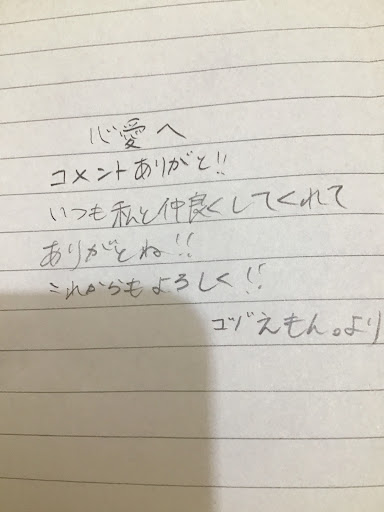 心愛へ
コメントありがと!!
いつも私と仲良くしてくれて
ありがとね!!
これからもよろしく!!
ゴヅえもん。より